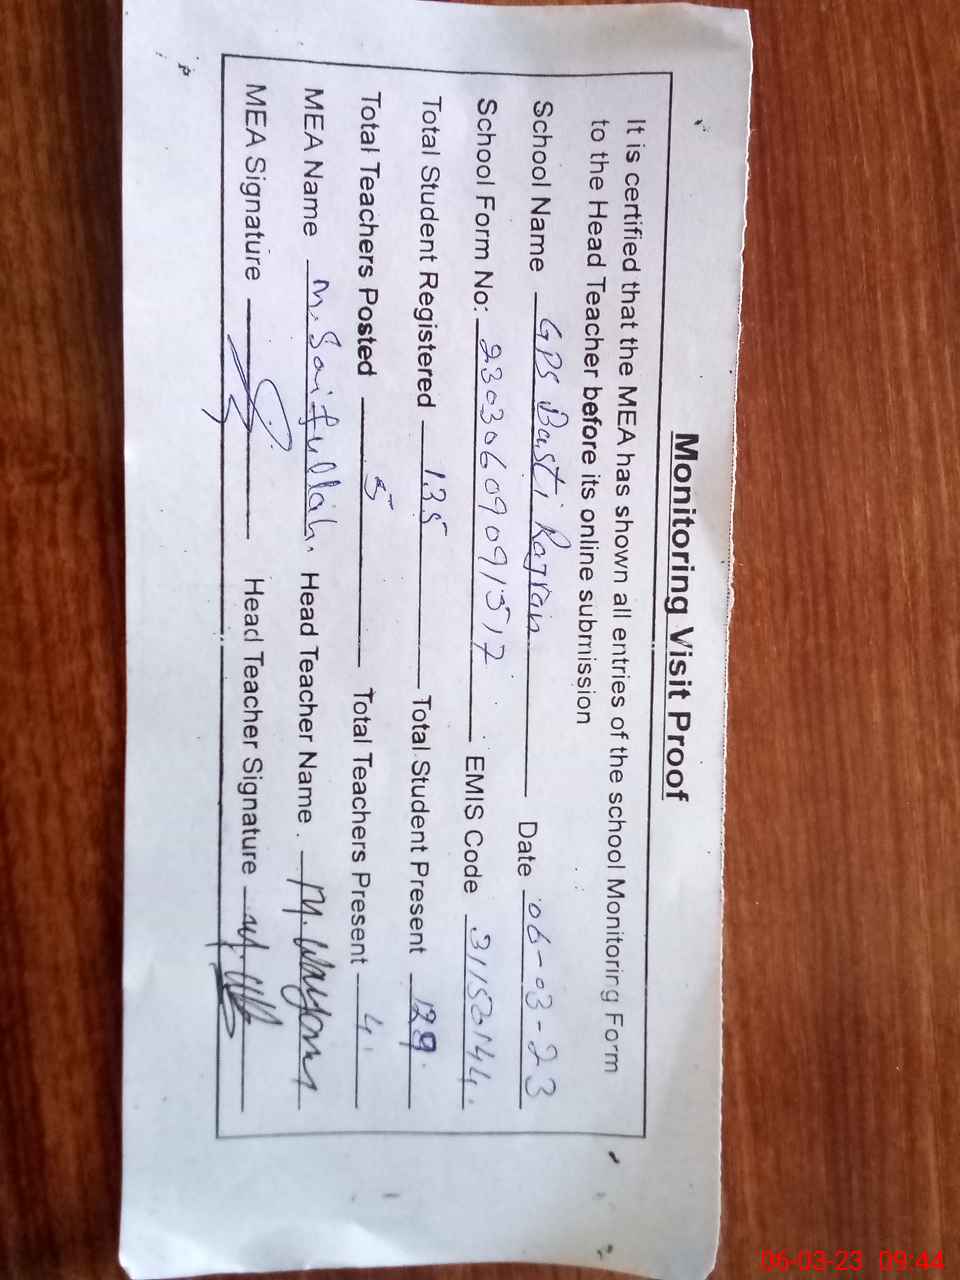 Monitoring Visit Proof
It is certified that the MEA has shown all entries of the school Monitoring Form
to the Head Teacher before its online submission
School Name GPS Basti Rajran Date 06-03-23
School Form No: 23030609091517 EMIS Code 31520144.
Total Student Registered 135 Total Student Present 129.
Total Teachers Posted 5 Total Teachers Present 4.
MEA Name M. Saifullah. Head Teacher Name. M.
MEA Signature Head Teacher Signature
06-03-23 09:44